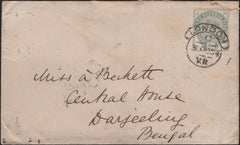 LONDON
V.R
Miss a Beckett
Central House
Darjeeling
Bengal